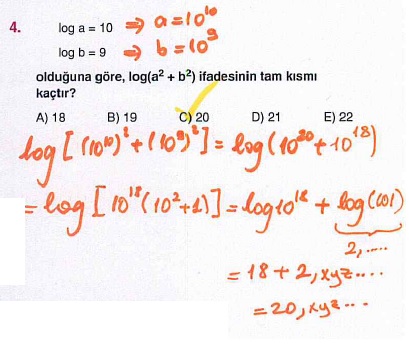 4. log a = 10 ⇒ a=10¹⁰
log b = 9 ⇒ b=10⁹
olduğuna göre, log(a² + b²) ifadesinin tam kısmı
kaçtır?
A) 18 B) 19 C) 20 D) 21 E) 22
log[(10¹⁰)²+(10⁹)²]=log(10²⁰+10¹⁸)
=log[10¹⁸(10²+1)]=log10¹⁸+log(101)
2,....
=18+2,xyz....
=20,xyz...